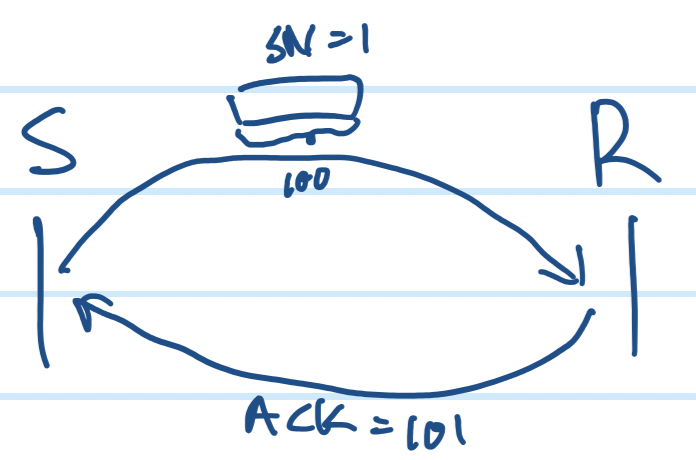 SN = 1
S
R
100
ACK = 101